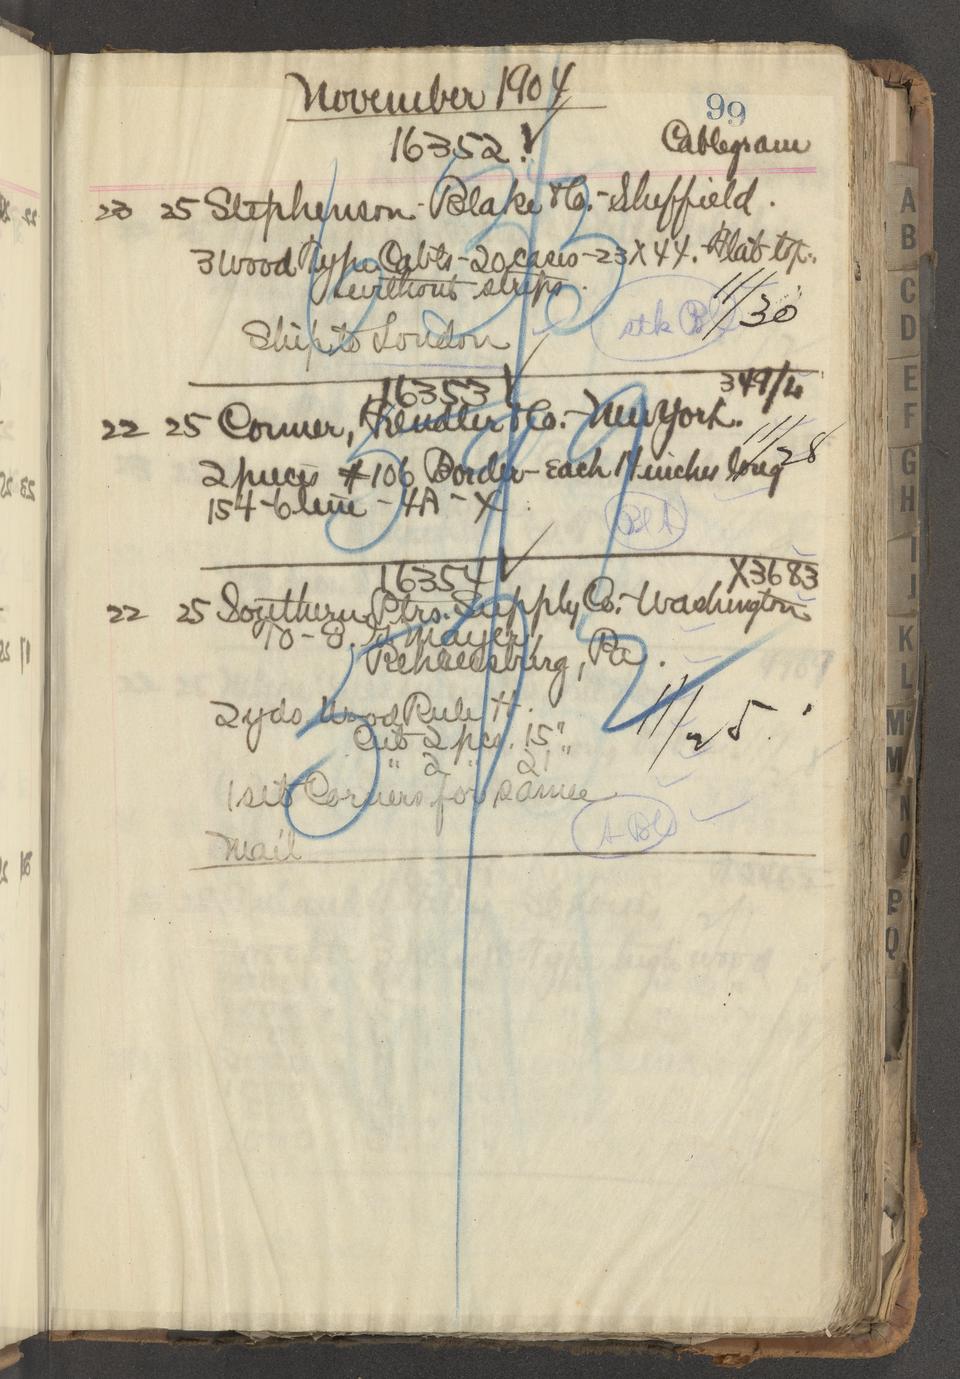 November 1904
99
16352 Cablegram
23 25 Stephenson - Blake & Co. - Sheffield.
3 Wood Type Cabts - 20 cases - 23 X 44. Flat top.
without strips.
11/30
Ship to London
stk
16353 349/4
22 25 Conner, Fendler & Co. - New York.
11/28
2 pieces #106 Border - each 11 inches long
154 - 6 line - 4A - X
16354 X3683
22 25 Southern Ptrs. Supply Co. - Washington
To - Mayer,
Rehrersburg, Pa.
2 yds Wood Rule H.
11/25
Cut 2 pcs. 15"
" 2 " 21"
1 set Corners for same
Mail
A
B
C
D
E
F
G
H
I
J
K
L
Mc
M
N
O
P
Q